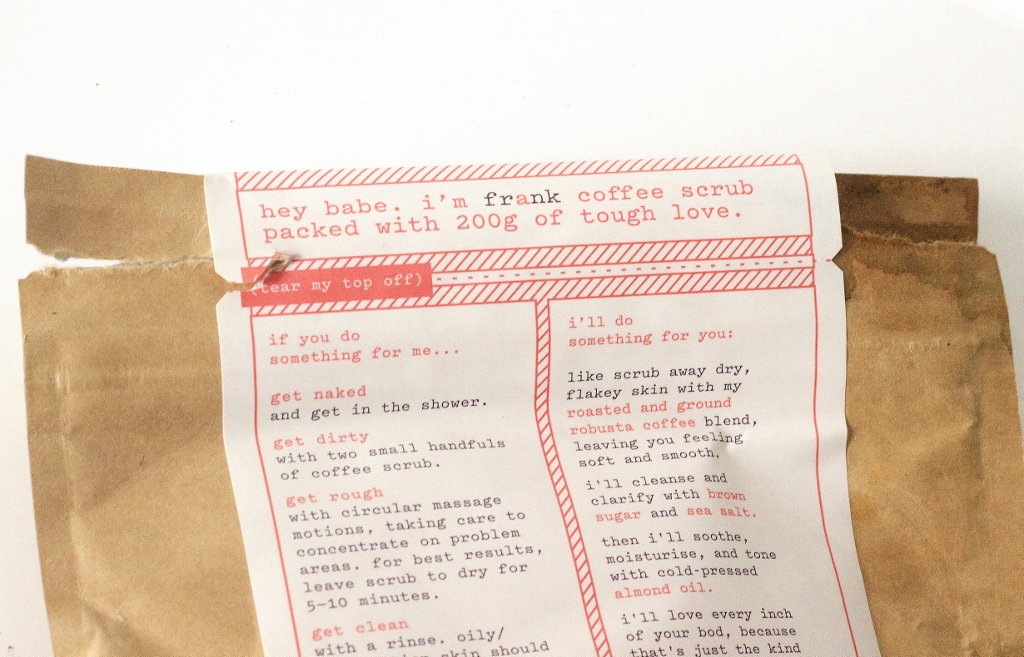 hey babe. i'm frank coffee scrub
packed with 200g of tough love.
(tear my top off)
if you do
something for me...
get naked
and get in the shower.
get dirty
with two small handfuls
of coffee scrub.
get rough
with circular massage
motions, taking care to
concentrate on problem
areas. for best results,
leave scrub to dry for
5-10 minutes.
get clean
with a rinse. oily/
skin should
i'll do
something for you:
like scrub away dry,
flakey skin with my
roasted and ground
robusta coffee blend,
leaving you feeling
soft and smooth.
i'll cleanse and
clarify with brown
sugar and sea salt.
then i'll soothe,
moisturise, and tone
with cold-pressed
almond oil.
i'll love every inch
of your bod, because
that's just the kind